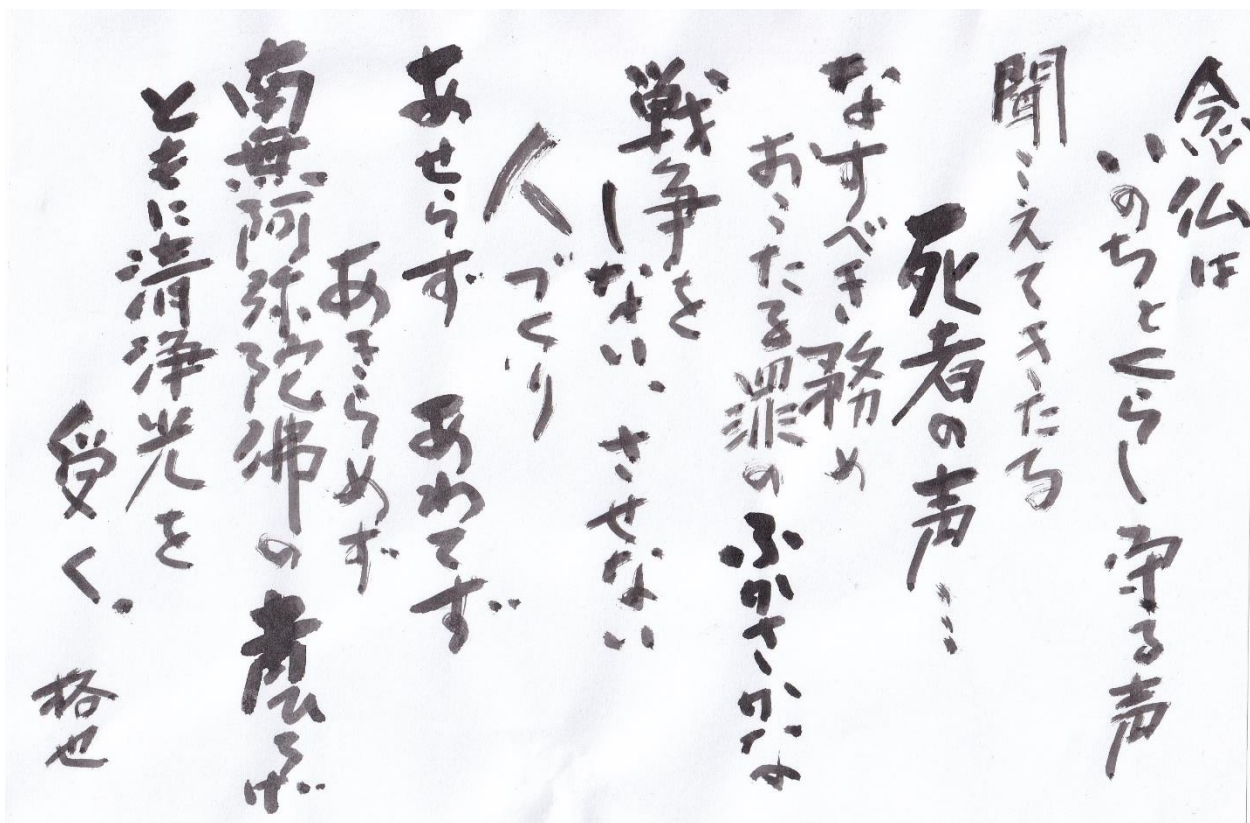 念仏は
いのちとくらし守る声
聞こえてきたる
死者の声…
なすべき務め
おこたる罪の ふかさかな
戦争を
しない、させない
人づくり
あせらず あわてず
あきらめず
南無阿弥陀佛の 声ひろげ
ともに清浄光を
受く。
格也